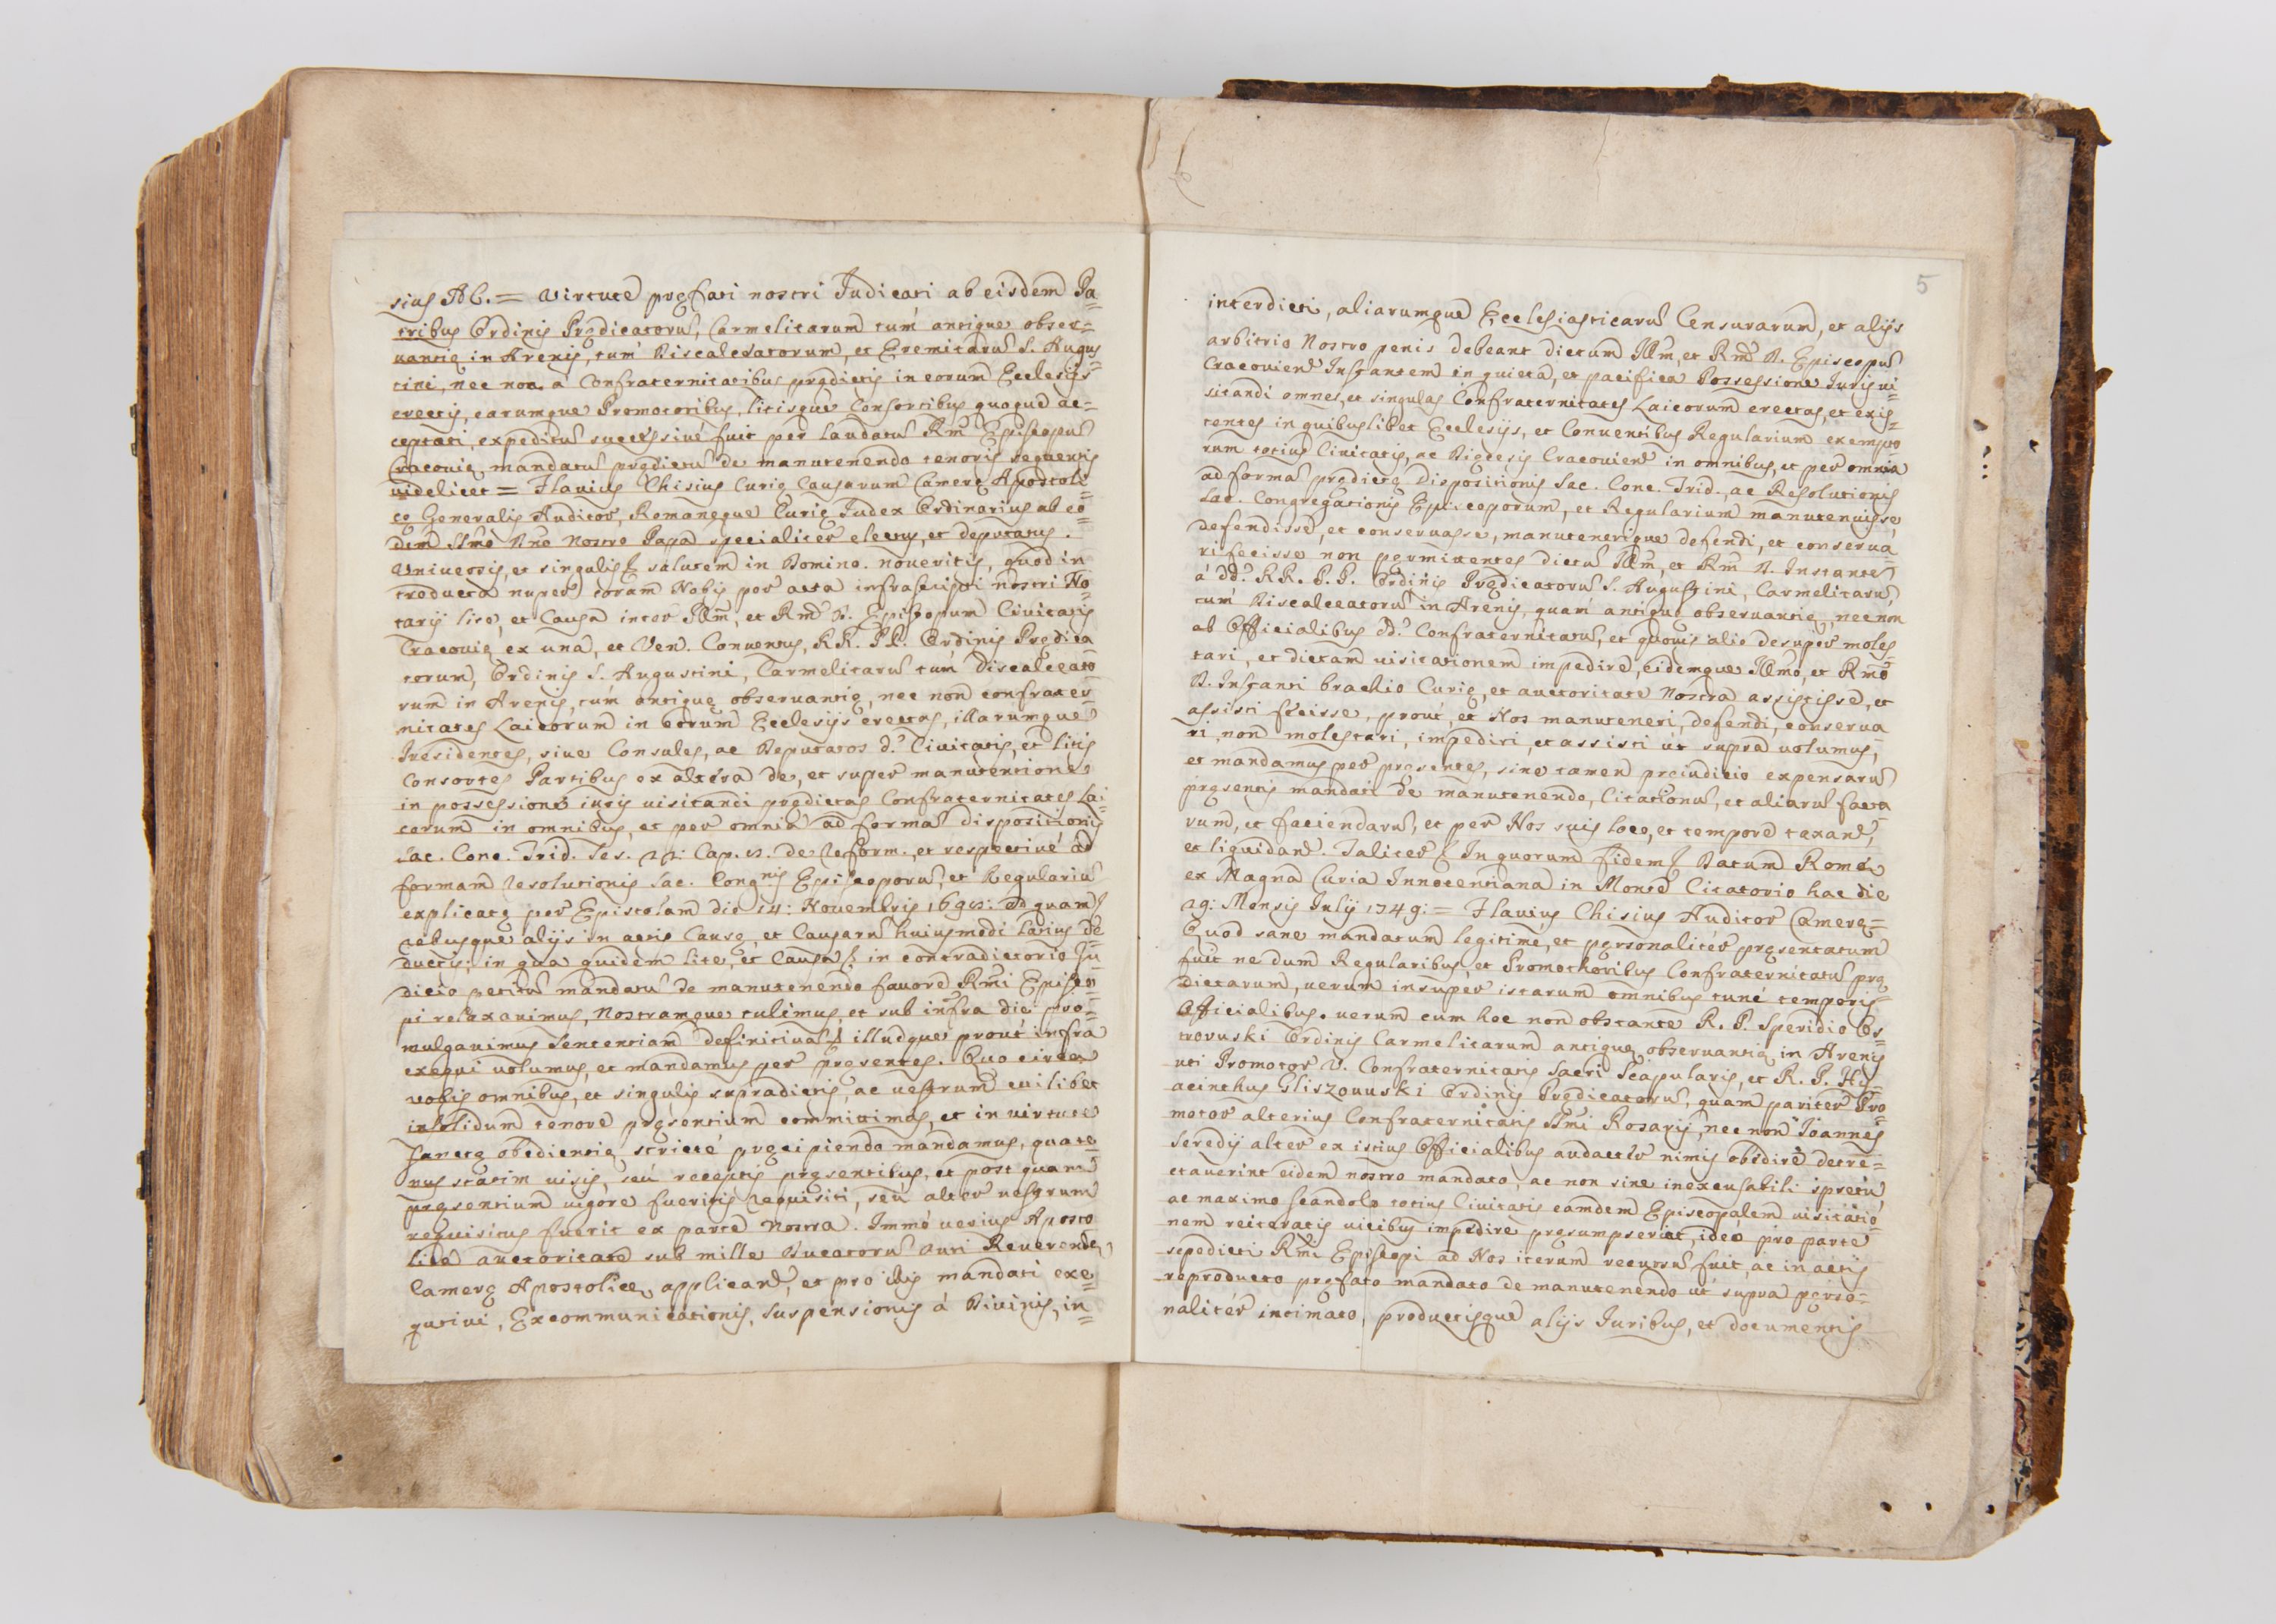 sius A.C. = Virtute pręfati nostri Iudicati ab eisdem Pa=
tribus Ordinis Prędicatorũ, Carmelitarum tum antique obser=
uantię in Arenis, tum Discalceatorum, et Eremitarũ S. Augus=
tini, nec non a Confraternitatibus prędictis in eorum Ecclesijs
erectis, earumque Promotoribus, litisque Consortibus quoqud ac=
ceptati, expeditũ successiué fuit per laudatũ Rm̃ Episcopũ
Cracouię, mandatũ prędictũ de manutenendo tenoris sequentis
uidelicet = Flauius Chisius Curię Causarum Camerę Apostoli=
cę Generalis Auditor, Romanęque Curię Iudex Ordinarius ab eo=
dem SSmo Dno Nostro Papa specialiter electus, et deputatus.
Vniuersis, et singulis salutem in Domino. noueritis, quod in
troducta nuper coram Nobis per acta infrascripti nostri No=
tarij lite, et Causa inter Illm̃, et Rmũ D. Episcopum Ciuitatis
Cracouię ex una, et Ven. Conuentus, RR. PP. Ordinis Prędica
torum, Ordinis S. Augustini, Carmelitarũ tum Discalceato
rum in Arenis, tum antiquę obseruantię, nec non confrater=
nitates Laicorum in eorum Ecclesijs erectas, illarumque
Pręsidentes, siue Consules, ac Deputatos d.ę Ciuitatis, et litis
Consortes Partibus ex altera de, et super manutentione
in possessione iuris uisitandi prędictas Confraternitates Lai=
corum in omnibus, et per omnia ad formã dispositionis
Sac. Conc. Trid. Ses. 22. Cap. 8. de Reform., et respectiué ad
formam resolutionis Sac. Congnis Episcoporũ, et Regulariũ
explicatę per Epistolam die 14: Nouembris ad quam
rebusque alijs in actis Causę, et Causarũ huiusmodi latius de=
ductis; in qua quidem lite, et Causa in contradictorio Iu=
dicio petitũ mandatũ de manutenendo fauore Rmi Episco=
pi relaxauimus, Nostramque tulimus, et sub infra die pro=
mulgauimus Sententiam definitiuã illudque prout infra
exequi uolumus, et mandamus per pręsentes. Quo circa
uobis omnibus, et singulis supradictis, ac uestrum cuilibet
insolidum tenore pręsentium committimus, et in uirtute
sanctę obędientię stricté pręcipiendo mandamus, quate=
nus statim uisis, seú receptis pręsentibus, et post quam
pręsentium uigore fueritis requisiti, seú alter uestrum
requisitus fuerit ex parte Nostra. Immó uerius Aposto
lica auctoritate sub mille Ducatorũ auri Reuerendę
Camerę Apostolicę applicand, et pro uis mandati exe=
qutiui, Excommunicationis, Suspensionis á Diuinis, in=
5
interdicti, aliarumque Ecclesiasticarũ Censurarum, et alijs
arbitrio Nostro penis debeant dictum Illm̃, et Rmũ D. Episcopũ
Cracouien Instantem in quieta, et pacifica Possessione Iuris ui=
sitandi omnes, et singulas Confraternitates Laicorum erectas, et exis=
tentes in quibuslibet Ecclesijs, et Conuentibus Regularium exempto
rum totius Ciuitatis, ac Dięcesis Cracouien in omnibus, et per omnia
ad formã prędictę Dispositiónis Sac. Conc. Trid., ac Resolutionis
Sac. Congregationis Episcoporum, et Regularium manutenuisse,
defendisse, et conseruasse, manutenerique defendi, et conserua=
ri fecisse non permittentes dictũ Illm̃, et Rm̃ D. Instante
á dd. RR. P.P. Ordinis Prędicatorũ S. Augustini, Carmelitarũ,
tum Discalceatorũ in Arenis, quam antiquę obseruantię, nec non
ab Officialibus dd. Confraternitatũ, et quouis alio desuper moles=
tari, et dictam uisitationem impedire, eidemque Illmo, et Rmo
D. Instanti brachio Curię, et auctoritate Nostra assistisse, et
assisti fecisse, prout, et Nos manuteneri, defendi, conserua=
ri, non molestari, impediri, et assisti út supra uolumus,
et mandamus per pręsentes, sine tamen preiudicio expensarũ
pręsentis mandati de manutenendo, Citationũ, et aliarũ facta
rum, et faciendarũ, et per Nos suis loco, et tempore taxand,
et liquidand. Taliter In quorum fidem Datum Romę
ex Magna Curia Innocentiana in Monte Citatorio hac die
29: Mensis Iulij 1749: = Flauius Chisius Auditor Camerę=
Quod sane mandatum legitimé, et personalitér pręsentatum
fuit ne dum Regularibus, et Promothoribus Confraternitatũ prę
dictarum, uerum insuper istarum omnibus tunc temporis
Officialibus. uerum cum hoc non obstante R. P. Speridio Os=
trouuski Ordinis Carmelitarum antiquę obseruantię in Arenis
uti Promotor V. Confraternitatis Sacri Scapularis, et R. P. Hy=
acinthus Gliszouuski Ordinis Prędicatorũ, quam pariter Pro=
motor alterius Confraternitatis SSmi Rosarij, nec non Ioannes
Seredij alter ex istius Officialibus audacter nimis obędire detre=
ctauerint eidem nostro mandato, ac non sine inexcusabili spretu
ac maximo scandolo totius Ciuitatis eamdem Episcopalem uisitatio=
nem reiteratis uicibus impedire pręsumpserint, ideó pro parte
sępedicti Rmi Episcopi ad Nos iterum recursũ fuit, ac in actis
reproducto pręfato mandato de manutenendo út supra perso=
nalitér intimato, productisque alijs Iuribus, et documentis